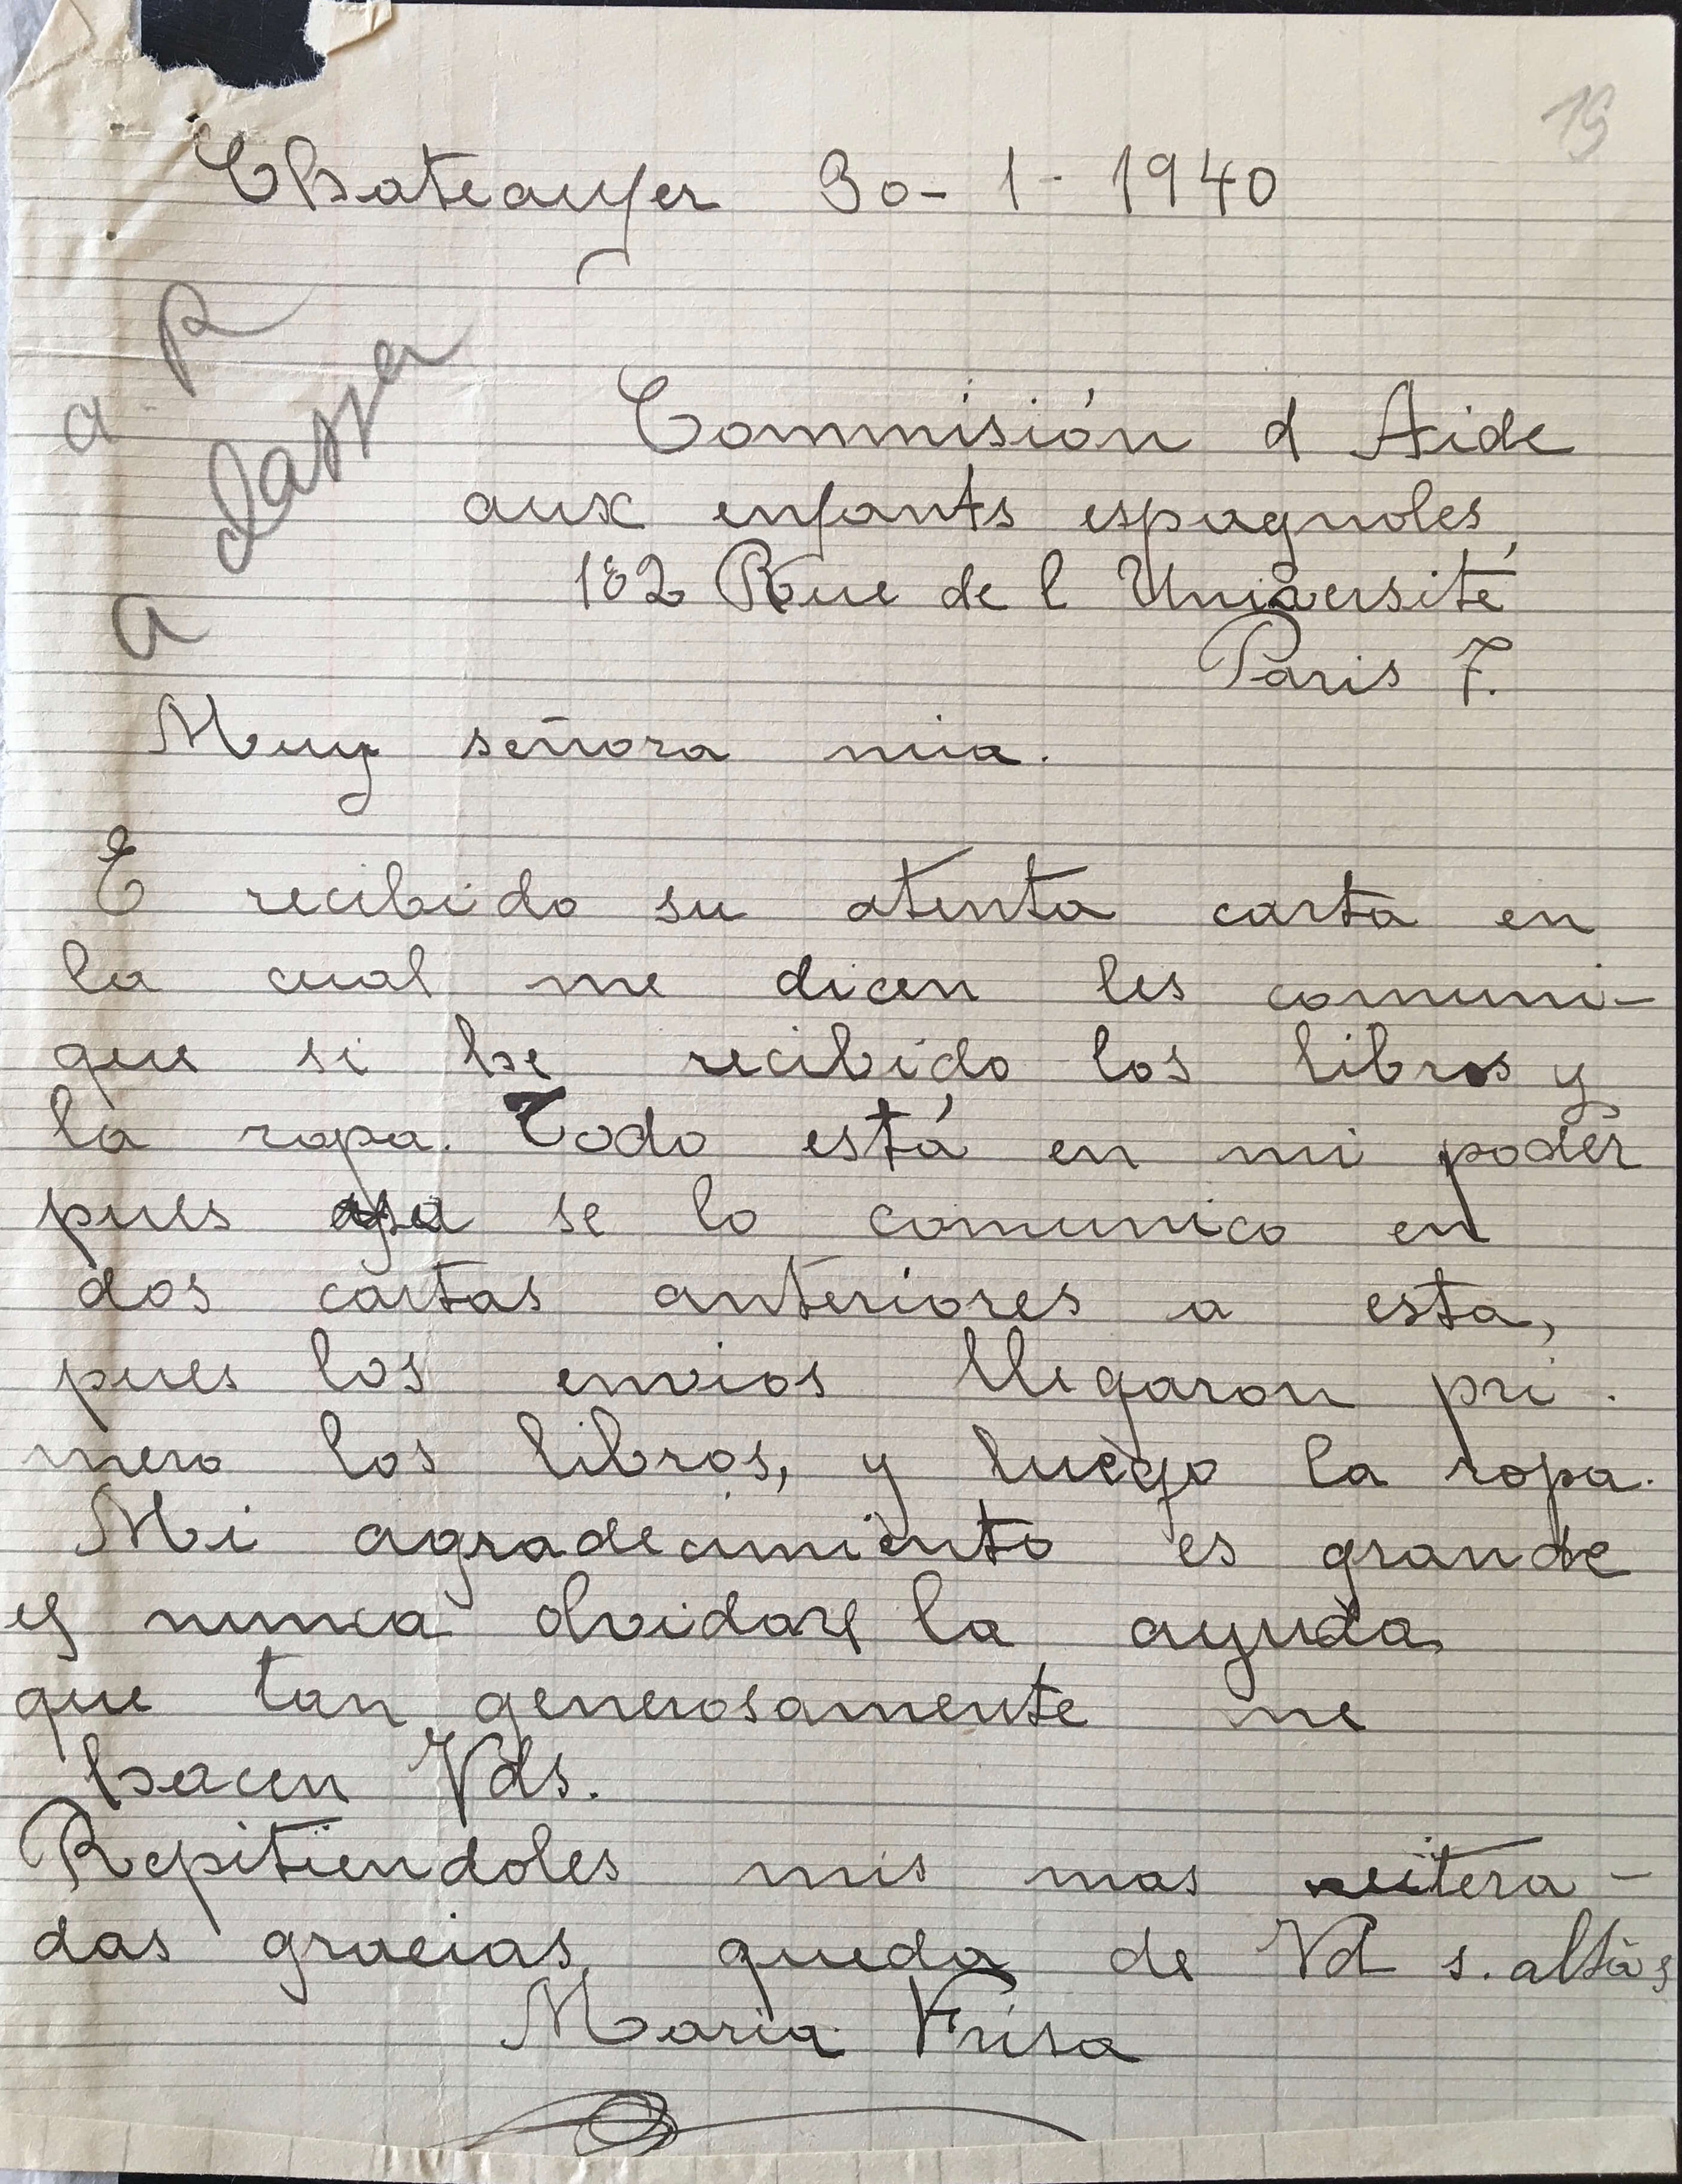 19
Chateauyer 30-1-1940
a. R
classer
a
Commisión d Aide
aux enfants espagnoles,
182 Rue de l Université
Paris 7.
Muy señora mia.
E recibido su atenta carta en
la cual me dicen les comuni-
que si he recibido los libros y
la ropa. Todo está en mi poder
pues ya se lo comunico en
dos cartas anteriores a esta,
pues los envios llegaron pri-
mero los libros, y luego la ropa.
Mi agradecimiento es grande
y nunca olvidaré la ayuda
que tan generosamente me
hacen Vds.
Repitiendoles mis mas reitera-
das gracias queda de Vd s.
Maria Frisa